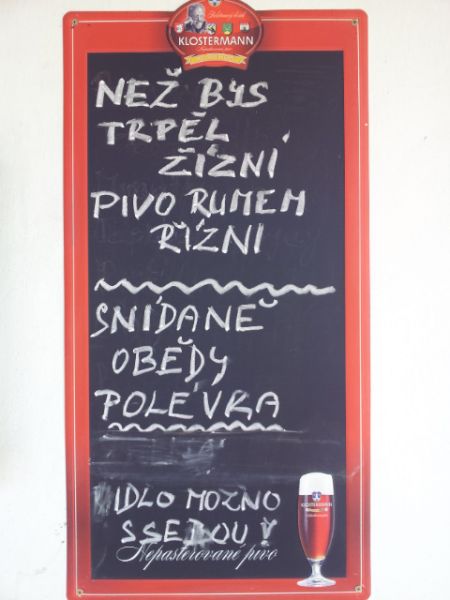 KLOSTERMANN
NEŽ BYS
TRPĚL
ŽÍZNÍ
PIVO RUMEM
ŘÍZNI
SNÍDANĚ
OBĚDY
POLÉVKA
JÍDLO MOŽNO
S SEBOU!
Nepasterované pivo
KLOSTERMANN